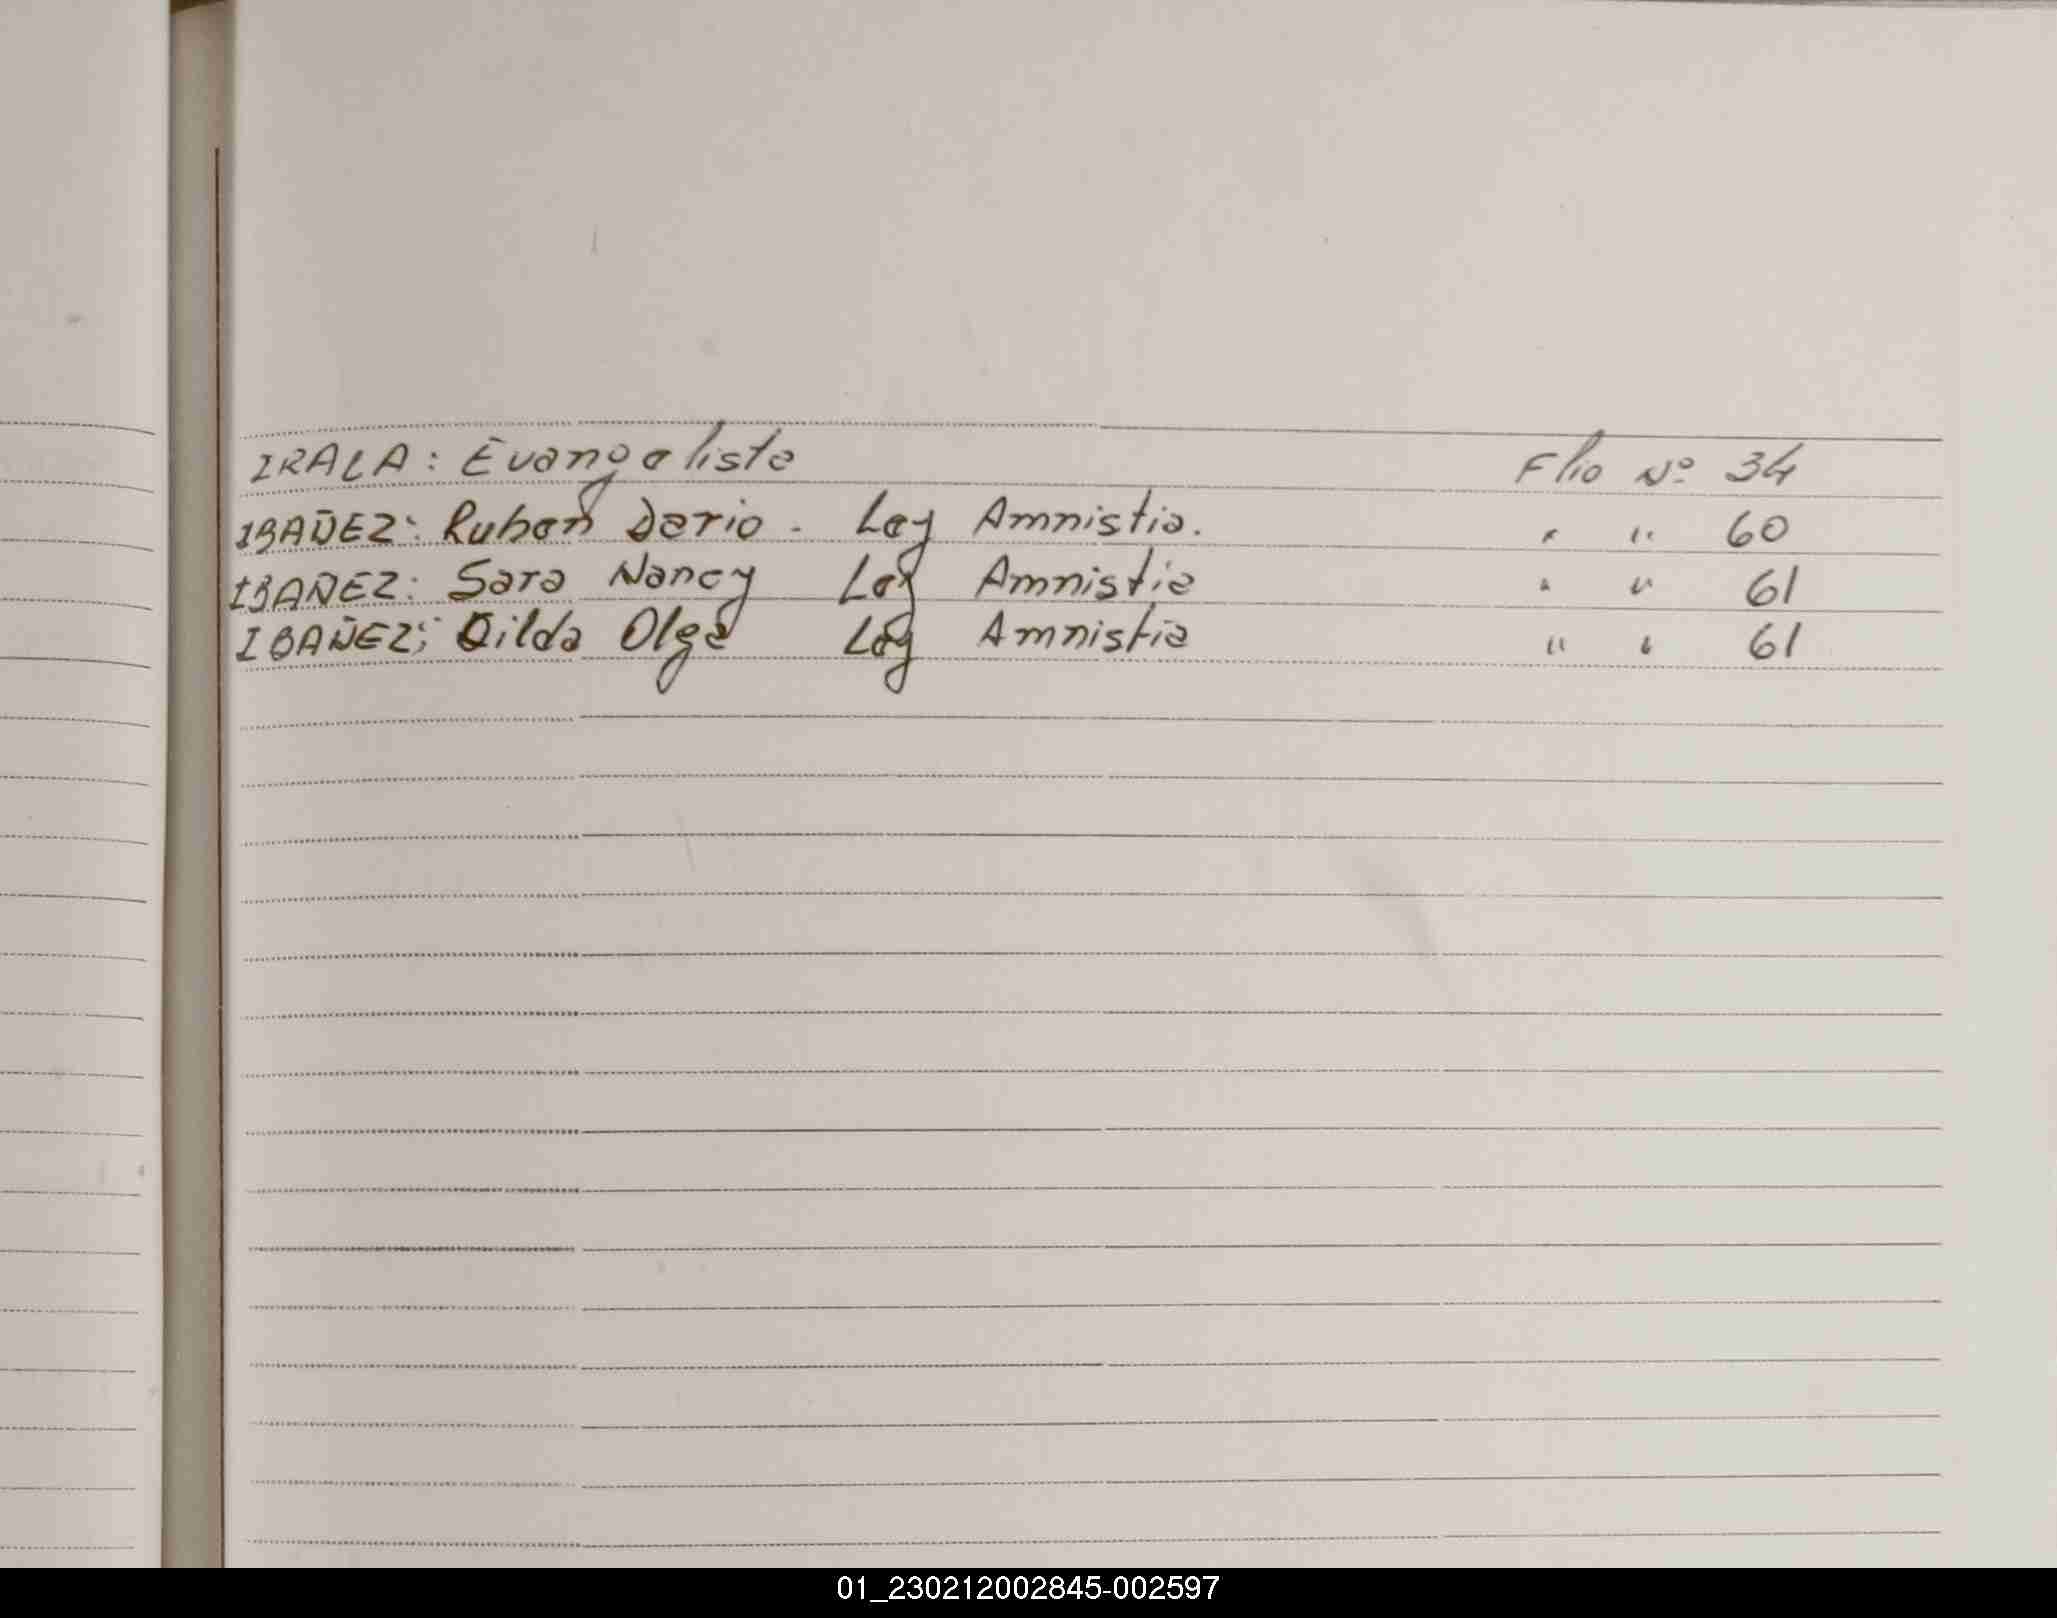 IRALA: Evangelista Flio Nº 34
IBAÑEZ: Ruben Dario - Ley Amnistia. " " 60
IBAÑEZ: Sara Nancy Ley Amnistia " " 61
IBAÑEZ; Gilda Olga Ley Amnistia " " 61
01_230212002845-002597